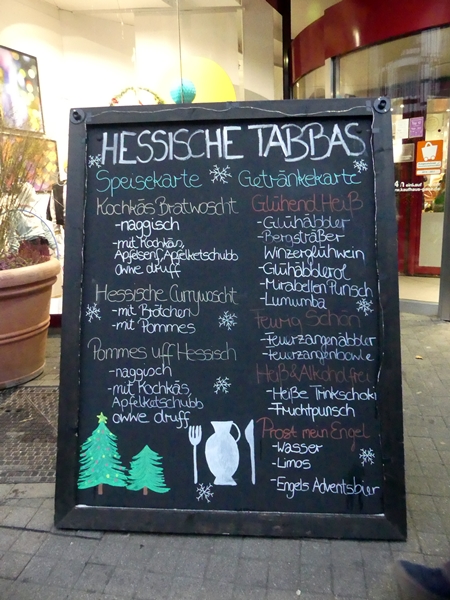 HESSISCHE TABBAS
Speisekarte
Kochkäs Bratwoscht
- naggisch
- mit Kochkäs,
Apfelsenf, Apfelketschubb
owwe druff
Hessische Currywoscht
- mit Brötchen
- mit Pommes
Pommes uff Hessisch
- naggisch
- mit Kochkäs,
Apfelketschubb
owwe druff
Getränkekarte
Glühend Heiß
- Glühäbbler
- Bergsträßer
Winzerglühwein
- Glühäbblerol
- Mirabellen Punsch
- Lumumba
Feurig Schön
- Feuerzangenäbbler
- Feuerzangenbowle
Heiß & Alkoholfrei
- Heiße Trinkschoki
- Fruchtpunsch
Prost mein Engel
- Wasser
- Limos
- Engels Adventsbier